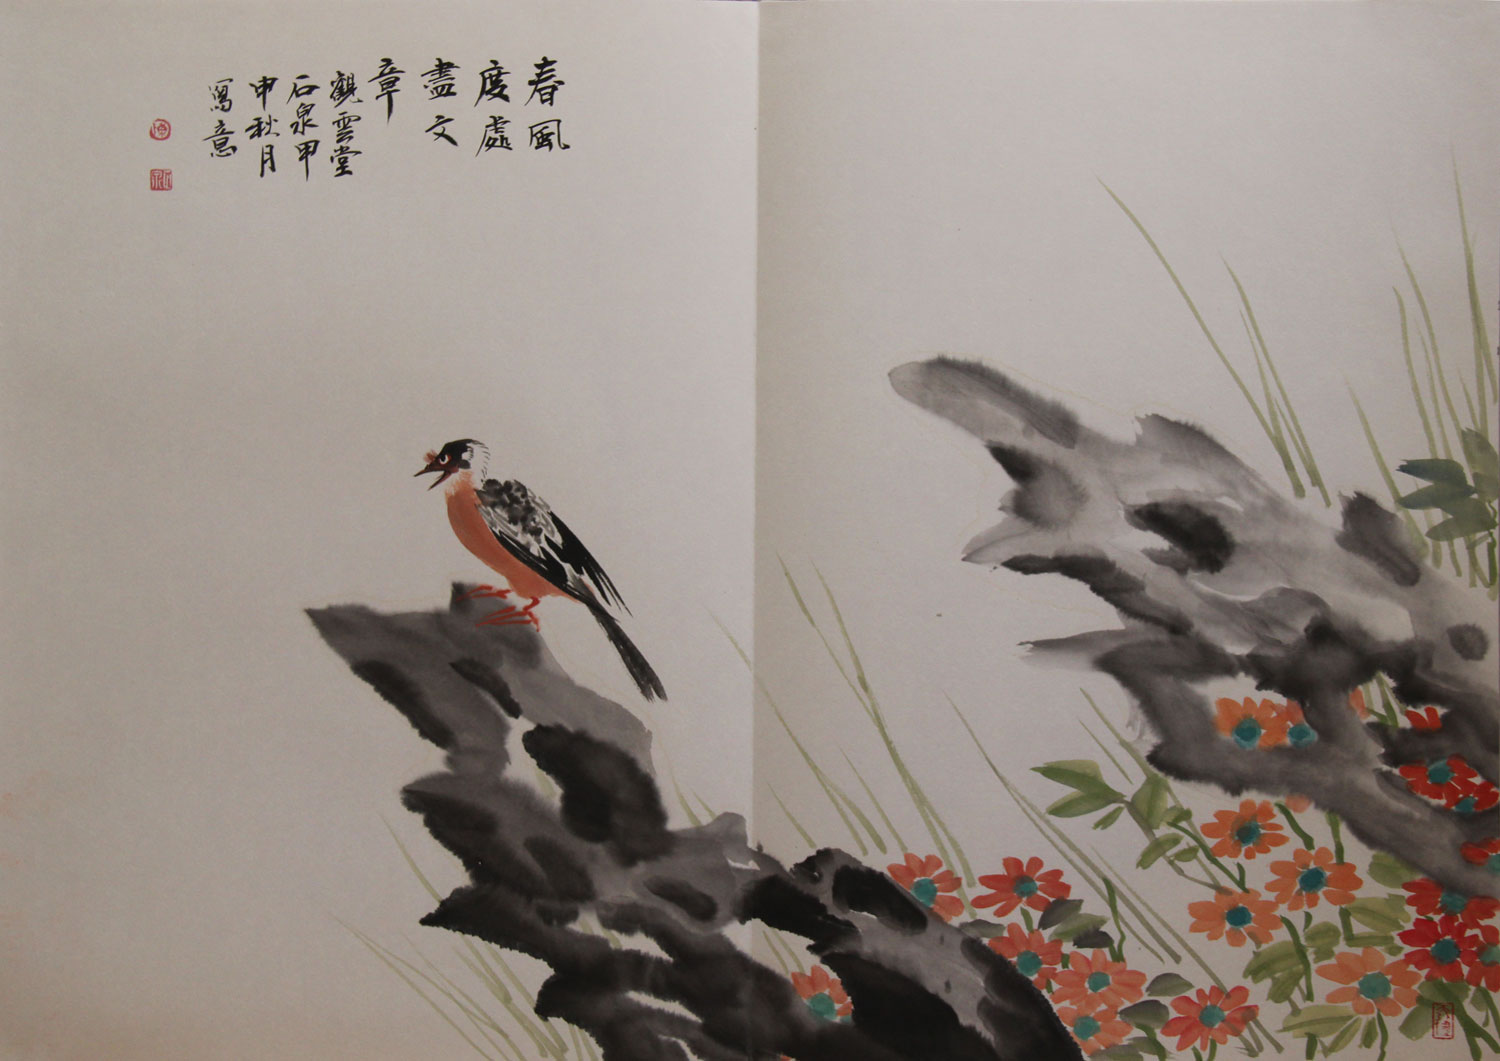 春風
度處
盡文
章
觀雲堂
石泉甲
申秋月
寫意